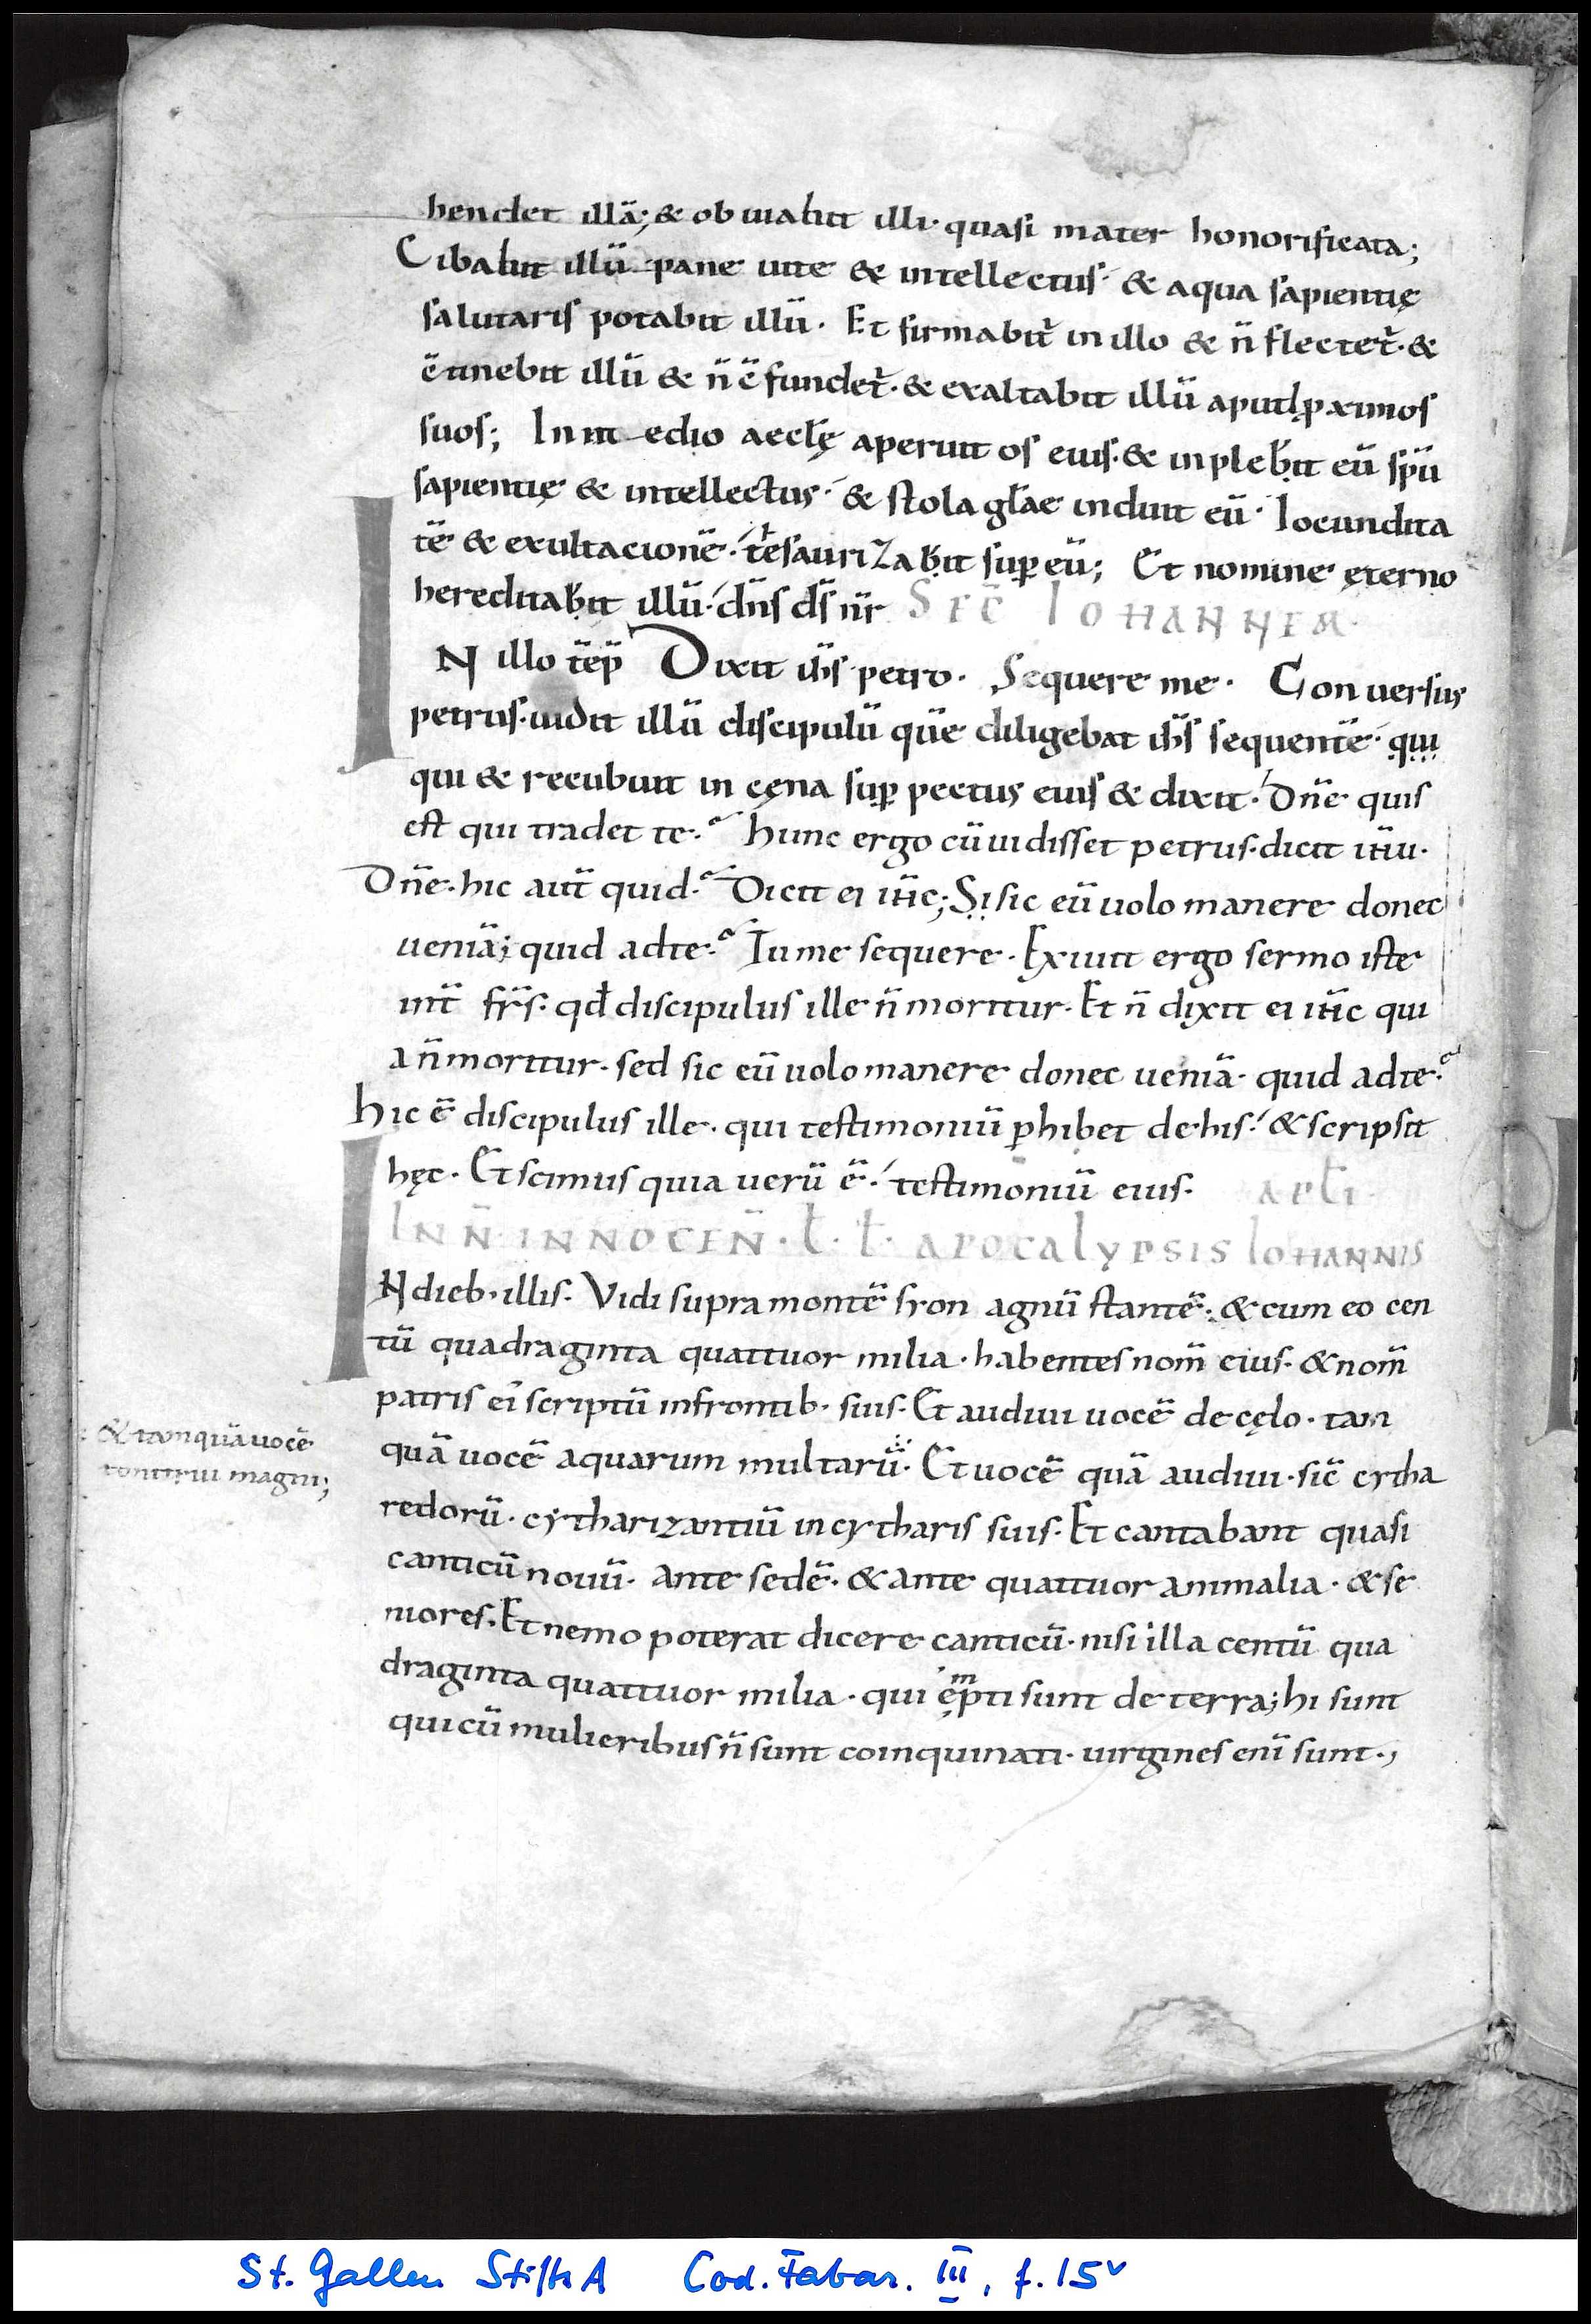 hendet illā; & obuiabit illi· quasi mater honorificata;
Cibabit illū pane uite & intellectus· & aqua sapientię
salutaris potabit illū· Et firmabit̄ in illo & n̄ flectet̄· &
c̄tinebit illū & n̄ c̄fundet̄· & exaltabit illū aput ꝓximos
suos; In medio aecl̄ę aperuit os eius· & inplebit eū sp̄ū
sapientię & intellectus· & stola gl̄ae induit eū· Iocundita
tē & exultacionē· tesaurizabit suꝑ eū; Et nomine ęterno
hereditabit illū· dn̄s ds̄ nr̄ SEC̄ IOHANNEM·
IN illo tēp̄ Dixit ih̄s petro· Sequere me· Conuersus
petrus· uidit illū discipulū quē diligebat ih̄s sequentē· qui
qui & recubuit in cęna suꝑ pectus eius & dixit· Dn̄e quis
est qui tradet te· hunc ergo cū uidisset petrus· dicit ih̄u·
Dn̄e· hic aut̄ quid· Dicit ei ih̄c; Si sic eū uolo manere donec
ueniā; quid ad te· Tu me sequere· Exiuit ergo sermo iste
int̄ fr̄s· qd̄ discipulus ille n̄ moritur· Et n̄ dixit ei ih̄c qui
a n̄ moritur· sed sic eū uolo manere donec ueniā· quid ad te·
hic ē discipulus ille· qui testimoniū ꝑhibet de his· & scripsit
hęc· Et scimus quia uerū ē· testimoniū eius· APL̄I·
IN N̄ INNOCEN̄· L̄· L̄· APOCALYPSIS IOHANNIS
IN dieb· illis· Vidi supra montē sion agnū stantē· & cum eo cen
tū quadraginta quattuor milia· habentes nom̄ eius· & nom̄
patris ei scriptū in frontib· suis· Et audiui uocē de cęlo· tam
quā uocē aquarum multarū· Et uocē quā audiui· sic̄ cytha
redorū· cytharizantiū in cytharis suis· Et cantabant quasi
canticū nouū· ante sedē· & ante quattuor animalia· & se
niores· Et nemo poterat dicere canticū· nisi illa centū qua
draginta quattuor milia· qui ēmpti sunt de terra; hi sunt
qui cū mulieribus n̄ sunt coinquinati· uirgines enī sunt·,
& tamquā uocē
tonitrui magni;
St. Gallen StiftsA Cod. Fabar. III, f. 15v